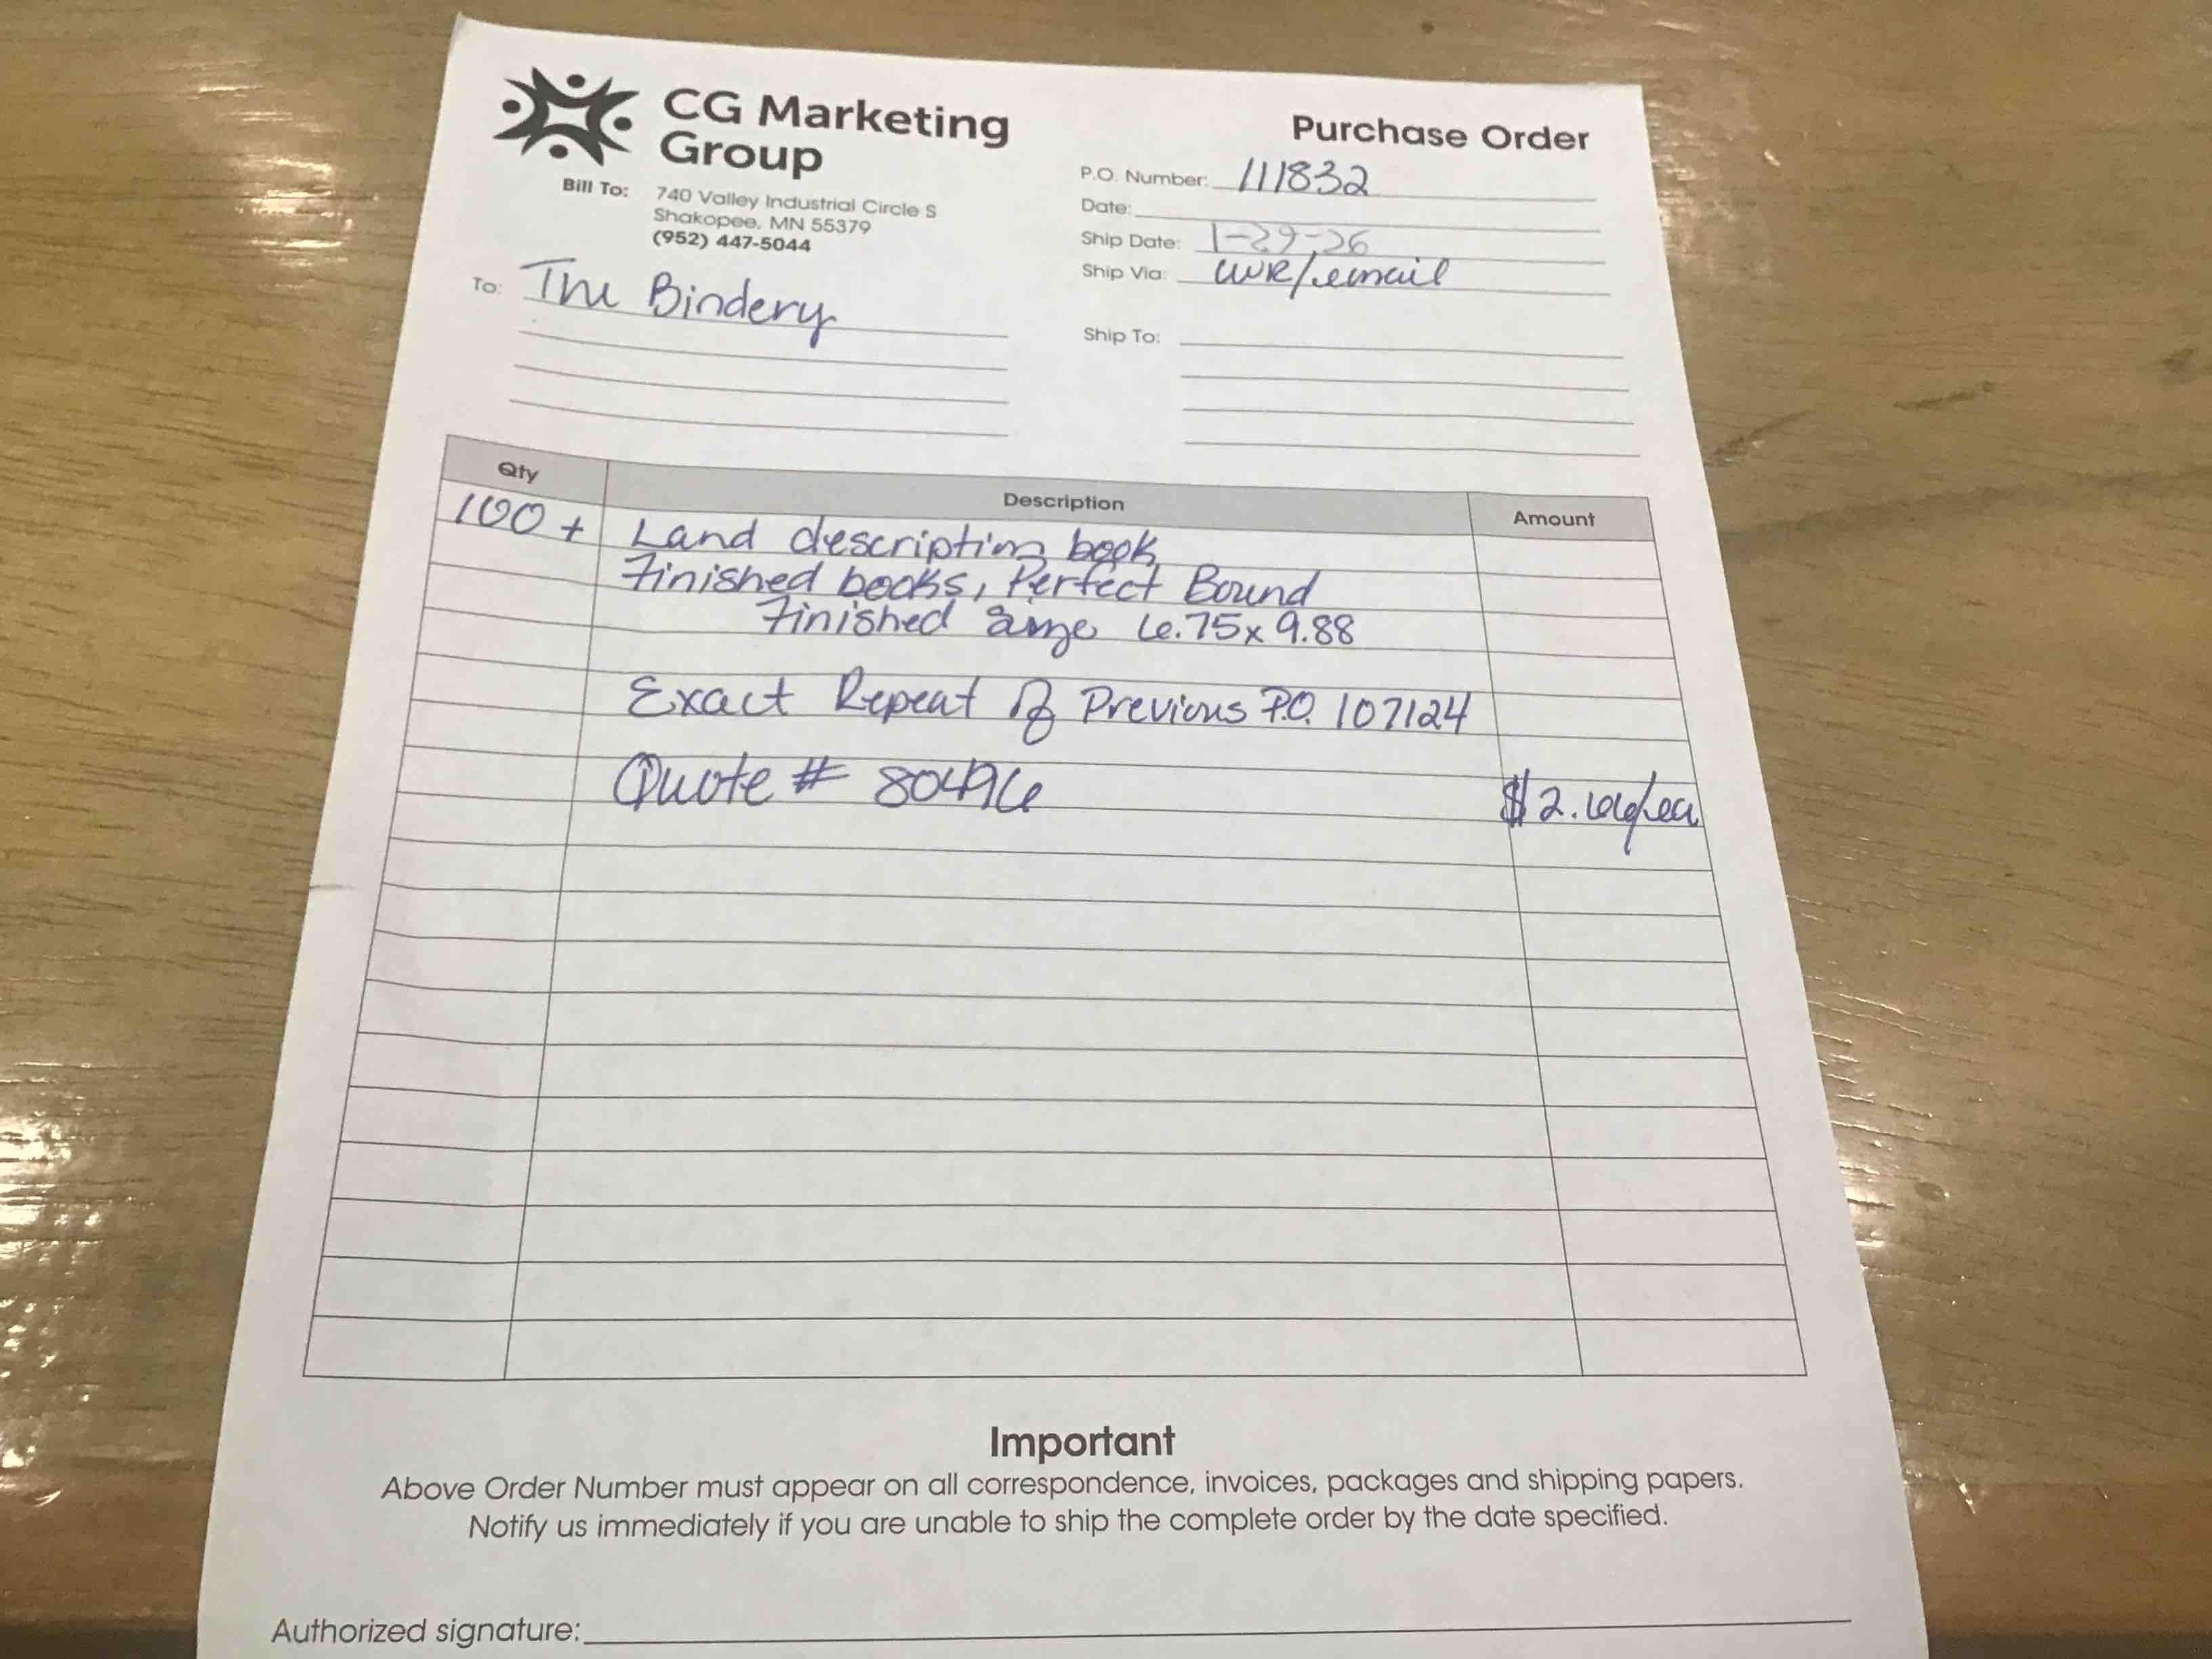 CG Marketing
Group
Purchase Order
Bill To: 740 Valley Industrial Circle S
Shakopee, MN 55379
(952) 447-5044
P.O. Number: 111832
Date:
Ship Date: 1-29-26
Ship Via: /email
To: The Bindery
Ship To:
Qty Description Amount
100+ Land description book
Finished books, Perfect Bound
Finished size 6.75x9.88
Exact Repeat of Previous P.O. 107124
Quote # 80496
Important
Above Order Number must appear on all correspondence, invoices, packages and shipping papers.
Notify us immediately if you are unable to ship the complete order by the date specified.
Authorized signature: